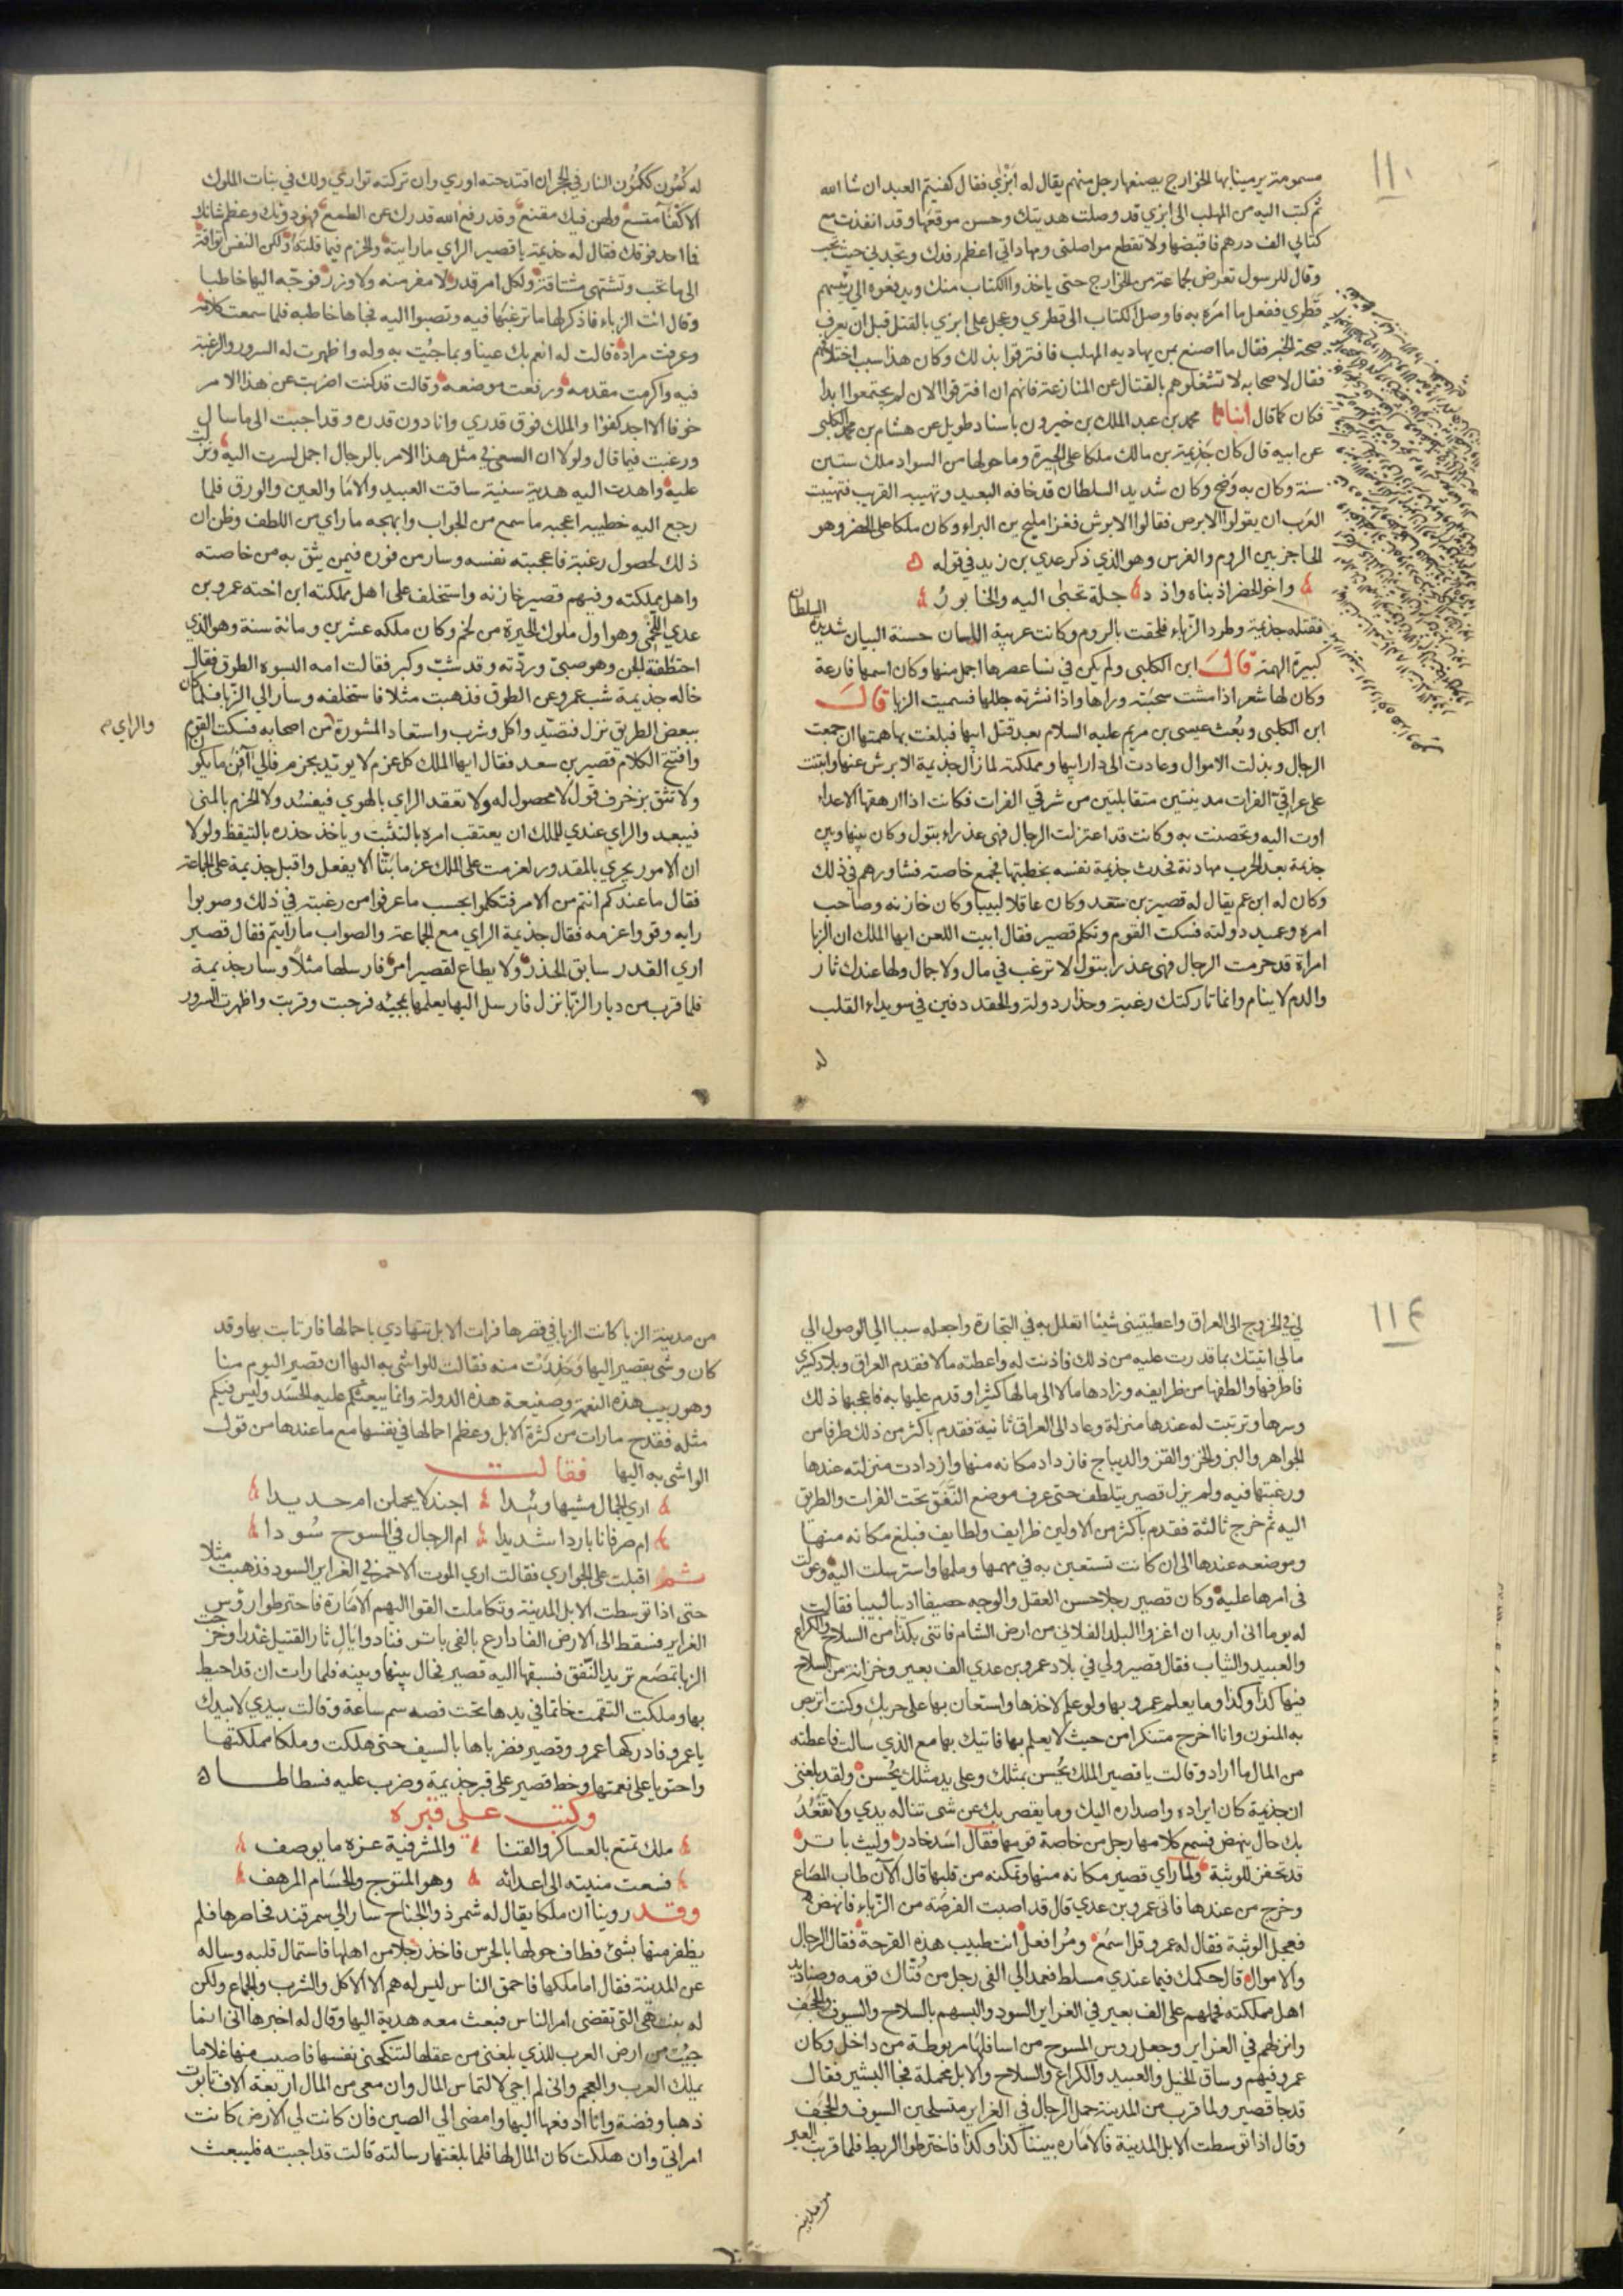 ١١٠
مسمومة يرمي بها الخوارج يصنعها رجل منهم يقال له ابزي فقال كفيتم العبد ان شا الله
ثم كتب اليه من المهلب الى ابزي قد وصلت هديتك وحسن موقعها وقد انفذت مع
كتابي الف درهم فاقبضها ولا تقطع مواصلتي ومهاداتي اعظم رفدك وتجدني حيث تحب
وقال للرسول تعرض لجماعة من الخوارج حتى ياخذوا الكتاب منك ويدفعوه الى رئيسهم
قطري ففعل ما امره به فاوصل الكتاب الى قطري وعجل على ابزي بالقتل قبل ان يعرف
صحة الخبر فقال ما اصنع بمن يهاديه المهلب فافترقوا بذلك وكان هذا سبب اختلافهم
فقال لاصحابه لا تشغلوهم بالقتال عن المنازعة فانهم ان افترقوا الان لم يجتمعوا ابدا
فكان كما قال انبانا محمد بن عبد الملك بن خيرون باسناد طويل عن هشام بن محمد الكلبي
عن ابيه قال كان جذيمة بن مالك ملكا على الحيرة وما حولها من السواد ملك ستين
سنة وكان به وضح وكان شديد السلطان قد خافه البعيد وتهيبه القريب فتهيبت
العرب ان يقولوا الابرص فقالوا الابرش فغزا مليح بن البراء وكان ملكا على الحضر وهو
الحاجز بين الروم والفرس وهو الذي ذكر عدي بن زيد في قوله
واخو الحضر اذ بناه واذ د جلة تجبى اليه والخابور
فقتله جذيمة وطرد الزباء فلحقت بالروم وكانت عربية اللسان حسنة البيان شديدة السلطان
كبيرة الهمة قال ابن الكلبي ولم يكن في نسا عصرها اجمل منها وكان اسمها فارعة
وكان لها شعر اذا مشت سحبته وراها واذا نشرته جللها فسميت الزبا قال
ابن الكلبي وبعث عيسى بن مريم عليه السلام بعد قتل ابيها فبلغت بها همتها ان جمعت
الرجال وبذلت الاموال وعادت الى دار ابيها ومملكته لما زال جذيمة الابرش عنها وابتنت
على عراقي الفرات مدينتين متقابلتين من شرقي الفرات فكانت اذا ارهقها الاعداء
اوت اليه وتحصنت به وكانت قد اعتزلت الرجال فهي عذراء بتول وكان بينها وبين
جذيمة بعد الحرب مهادنة فحدث جذيمة نفسه بخطبتها فجمع خاصته فشاورهم في ذلك
وكان له ابن عم يقال له قصير بن سعد وكان عاقلا لبيبا وكان خازنه وصاحب
امره وعميد دولته فسكت القوم وتكلم قصير فقال ابيت اللعن ايها الملك ان الزبا
امراة قد حرمت الرجال فهي عذرا بتول لا ترغب في مال ولا جمال ولها عندك ثار
والدم لا ينام وانما تاركتك رغبة وحذار دولة والحقد دفين في سويداء القلب
له
له كمون ككمون النار في الحجر ان اقتدحته اوري وان تركته توارى ولك في بنات الملوك
الاكفا مقسم ولهن فيك مقنع وقد رفع الله قدرك عن الطمع فيمن دونك وعظم شانك
فما احد فوقك فقال له جذيمة يا قصير الراي ما رايته والحزم فيما قلته ولكن النفس تواقة
الى ما تحب وتشتهي مشتاقة ولكل امر قدر لا مفر منه ولا وزر فوجه اليها خاطبا
وقال ائت الزباء فاذكر لها ما ترغبها فيه وتصبوا اليه فجاها خاطبه فلما سمعت كلامه
وعرفت مراده قالت له انعم بك عينا وبما جئت به وله واظهرت له السرور والرغبة
فيه واكرمت مقدمه ورفعت موضعه وقالت قد كنت اضربت عن هذا الامر
خوفا الا اجد كفوا والملك فوق قدري وانا دون قدره وقد اجبت الى ما سال
ورغبت فيما قال ولولا ان السعي في مثل هذا الامر بالرجال اجمل لسرت اليه ونزلت
عليه واهدت اليه هدية سنية ساقت العبيد والاما والعين والورق فلما
رجع اليه خطيبه اعجبه ما سمع من الجواب وابهجه ما راي من اللطف وظن ان
ذلك لحصول رغبة فاعجبته نفسه وسار من فوره فيمن يثق به من خاصته
واهل مملكته وفيهم قصير خازنه واستخلف على اهل مملكته ابن اخته عمرو بن
عدي اللخمي وهو اول ملوك الحيرة من لخم وكان ملكه عشرين ومائة سنة وهو الذي
اختطفته الجن وهو صبي وردته وقد شب وكبر فقالت امه البسوه الطوق فقال
خاله جذيمة شب عمرو عن الطوق فذهبت مثلا فاستخلفه وسار الى الزبا فلما كان
ببعض الطريق نزل فتصيد واكل وشرب واستعاد المشورة من اصحابه فسكت القوم
والراي
وافتتح الكلام قصير بن سعد فقال ايها الملك كل عزم لا يؤيد بحزم فالى افن ما يكون
ولا تثق بزخرف قول لا محصول له ولا تعقد الراي بالهوي فيفسد ولا الحزم بالمنى
فيبعد والراي عندي للملك ان يعتقب امره بالتثبت وياخذ حذره بالتيقظ ولولا
ان الامور يجري بالمقدور لعزمت على الملك عزما بتا الا يفعل واقبل جذيمة على الجماعة
فقال ما عندكم انتم من الامر فتكلموا بحسب ما عرفوا من رغبته في ذلك وصوبوا
رايه وقووا عزمه فقال جذيمة الراي مع الجماعة والصواب ما رايتم فقال قصير
اري القدر سابق الحذر ولا يطاع لقصير امر فارسلها مثلا وسار جذيمة
فلما قرب من ديار الزبا نزل فارسل اليها يعلمها بمجيئه فرحبت وقربت واظهرت السرور
١١٤
لي في الخروج الى العراق واعطيتني شيئا اتعلل به في التجارة واجعله سببا الى الوصول الى
مالي اتيتك بما قدرت عليه من ذلك فاذنت له واعطته مالا فقدم العراق وبلاد كسرى
فاطرفها والطفها من طرايفه وزادها مالا الى مالها كثيرا وقدم عليها به فاعجبها ذلك
وسرها وترتبت له عندها منزلة وعاد الى العراق ثانية فقدم باكثر من ذلك طرفا من
الجواهر والبز والخز والقز والديباج فازداد مكانه منها وازدادت منزلته عندها
ورغبتها فيه ولم يزل قصير يتلطف حتى عرف موضع النفق تحت الفرات والطريق
اليه ثم خرج ثالثة فقدم باكثر من الاوليين ظرايف ولطايف فبلغ مكانه منها
وموضعه عندها الى ان كانت تستعين به في مهمها وملمها واسترسلت اليه وعولت
في امرها عليه وكان قصير رجلا حسن العقل والوجه حصيفا اديبا لبيبا فقالت
له يوما اني اريد ان اغزوا البلد الفلاني من ارض الشام فاتني بكذا من السلاح والكراع
والعبيد والثياب فقال قصير ولي في بلاد عمرو بن عدي الف بعير وخزانة من السلاح
فيها كذا وكذا وما يعلم عمرو بها ولو علم لاخذها واستعان بها على حربك وكنت اتربص
به المنون وانا اخرج متنكرا من حيث لا يعلم بها فاتيك بها مع الذي سالت فاعطته
من المال ما اراد وقالت يا قصير الملك يحسن بمثلك وعلى يد مثلك يحسن ولقد بلغني
ان جذيمة كان ايراده واصداره اليك وما يقصر بك عن شي تناله يدي ولا تقعد
بك حال ينهض فسمع كلامها رجل من خاصة قومها فقال اسد خادر وليث باتر
قد تحفز للوثبة ولما راي قصير مكانه منها وتمكنه من قلبها قال الان طاب المصاع
وخرج من عندها فاتى عمرو بن عدي قال قد اصبت الفرصة من الزباء فانهض
فعجل الوثبة فقال له عمرو قل اسمع ومر افعل انت طبيب هذه القرحة فقال الرجال
والاموال قال حكمك فيما عندي مسلط فعمد الى الفي رجل من فتاك قومه وصناديد
اهل مملكته فحملهم على الف بعير في الغراير السود والبسهم بالسلاح والسيوف والحجف
وانزلهم في الغراير وجعل روس المسوح من اسافلها مربوطة من داخل وكان
عمرو فيهم وساق الخيل والعبيد والكراع والسلاح والابل محملة فجا البشير فقال
قد جا قصير ولما قرب من المدينة حمل الرجال في الغراير متسلحين السيوف والحجف
وقال اذا توسطت الابل المدينة فالاماره بيننا كذا وكذا فاخترطوا الربط فلما قربت العير
من مدينة
من مدينة الزبا كانت الزبا في قصرها فرات الابل تتهادي باحمالها فارتابت بها وقد
كان وشى بقصير اليها وحذرت منه فقالت للواشي به اليها ان قصير اليوم منا
وهو ربيب هذه النعمة وصنيعة هذه الدولة وانما يبعثكم عليه الحسد وليس فيكم
مثله فقدح ما رات من كثرة الابل وعظم احمالها في نفسها مع ما عندها من قول
الواشي به اليها فقالت
اري الجمال مشيها وئيدا اجندلا يحملن ام حديدا
ام صرفانا باردا شديدا ام الرجال في المسوح سودا
ثم اقبلت على الجواري فقالت اري الموت الاحمر في الغراير السود فذهبت مثلا
حتى اذا توسطت الابل المدينة وتكاملت القوا اليهم الامارة فاخترطوا رؤس
الغراير فسقط الى الارض الفا دارع بالفي باتر فنادوا يال ثار القتيل غدرا وخرجت
الزبا تمصع تريد النفق فسبقها اليه قصير فحال بينها وبينه فلما رات ان قد احيط
بها وملكت التقمت خاتما في يدها تحت فصه سم ساعة وقالت بيدي لا بيدك
يا عمرو فادركها عمرو وقصير فضرباها بالسيف حتى هلكت وملكا مملكتها
واحتويا على نعمتها وخط قصير على قبر جذيمة وضرب عليه فسطاطا
وكتب على قبره
ملك تمتع بالعساكر والقنا والمشرفية عزه ما يوصف
فسعت منيته الى اعدائه وهو المتوج والحسام المرهف
وقد روينا ان ملكا يقال له شمر ذو الجناح سار الى سمرقند فحاصرها فلم
يظفر منها بشئ فطاف حولها بالحرس فاخذ رجلا من اهلها فاستمال قلبه وساله
عن المدينة فقال اما ملكها فاحمق الناس ليس له هم الا الاكل والشرب والجماع ولكن
له بنت هي التي تقضي امر الناس فبعث معه هدية اليها وقال له اخبرها اني انما
جئت من ارض العرب للذي بلغني من عقلها لتنكحني نفسها فاصيب منها غلاما
يملك العرب والعجم واني لم اجي لالتماس المال وان معي من المال اربعة الاف تابوت
ذهبا وفضة وانا ادفعها اليها وامضي الى الصين فان كانت لي الارض كانت
امراتي وان هلكت كان المال لها فلما بلغتها رسالته قالت قد اجبته فليبعث